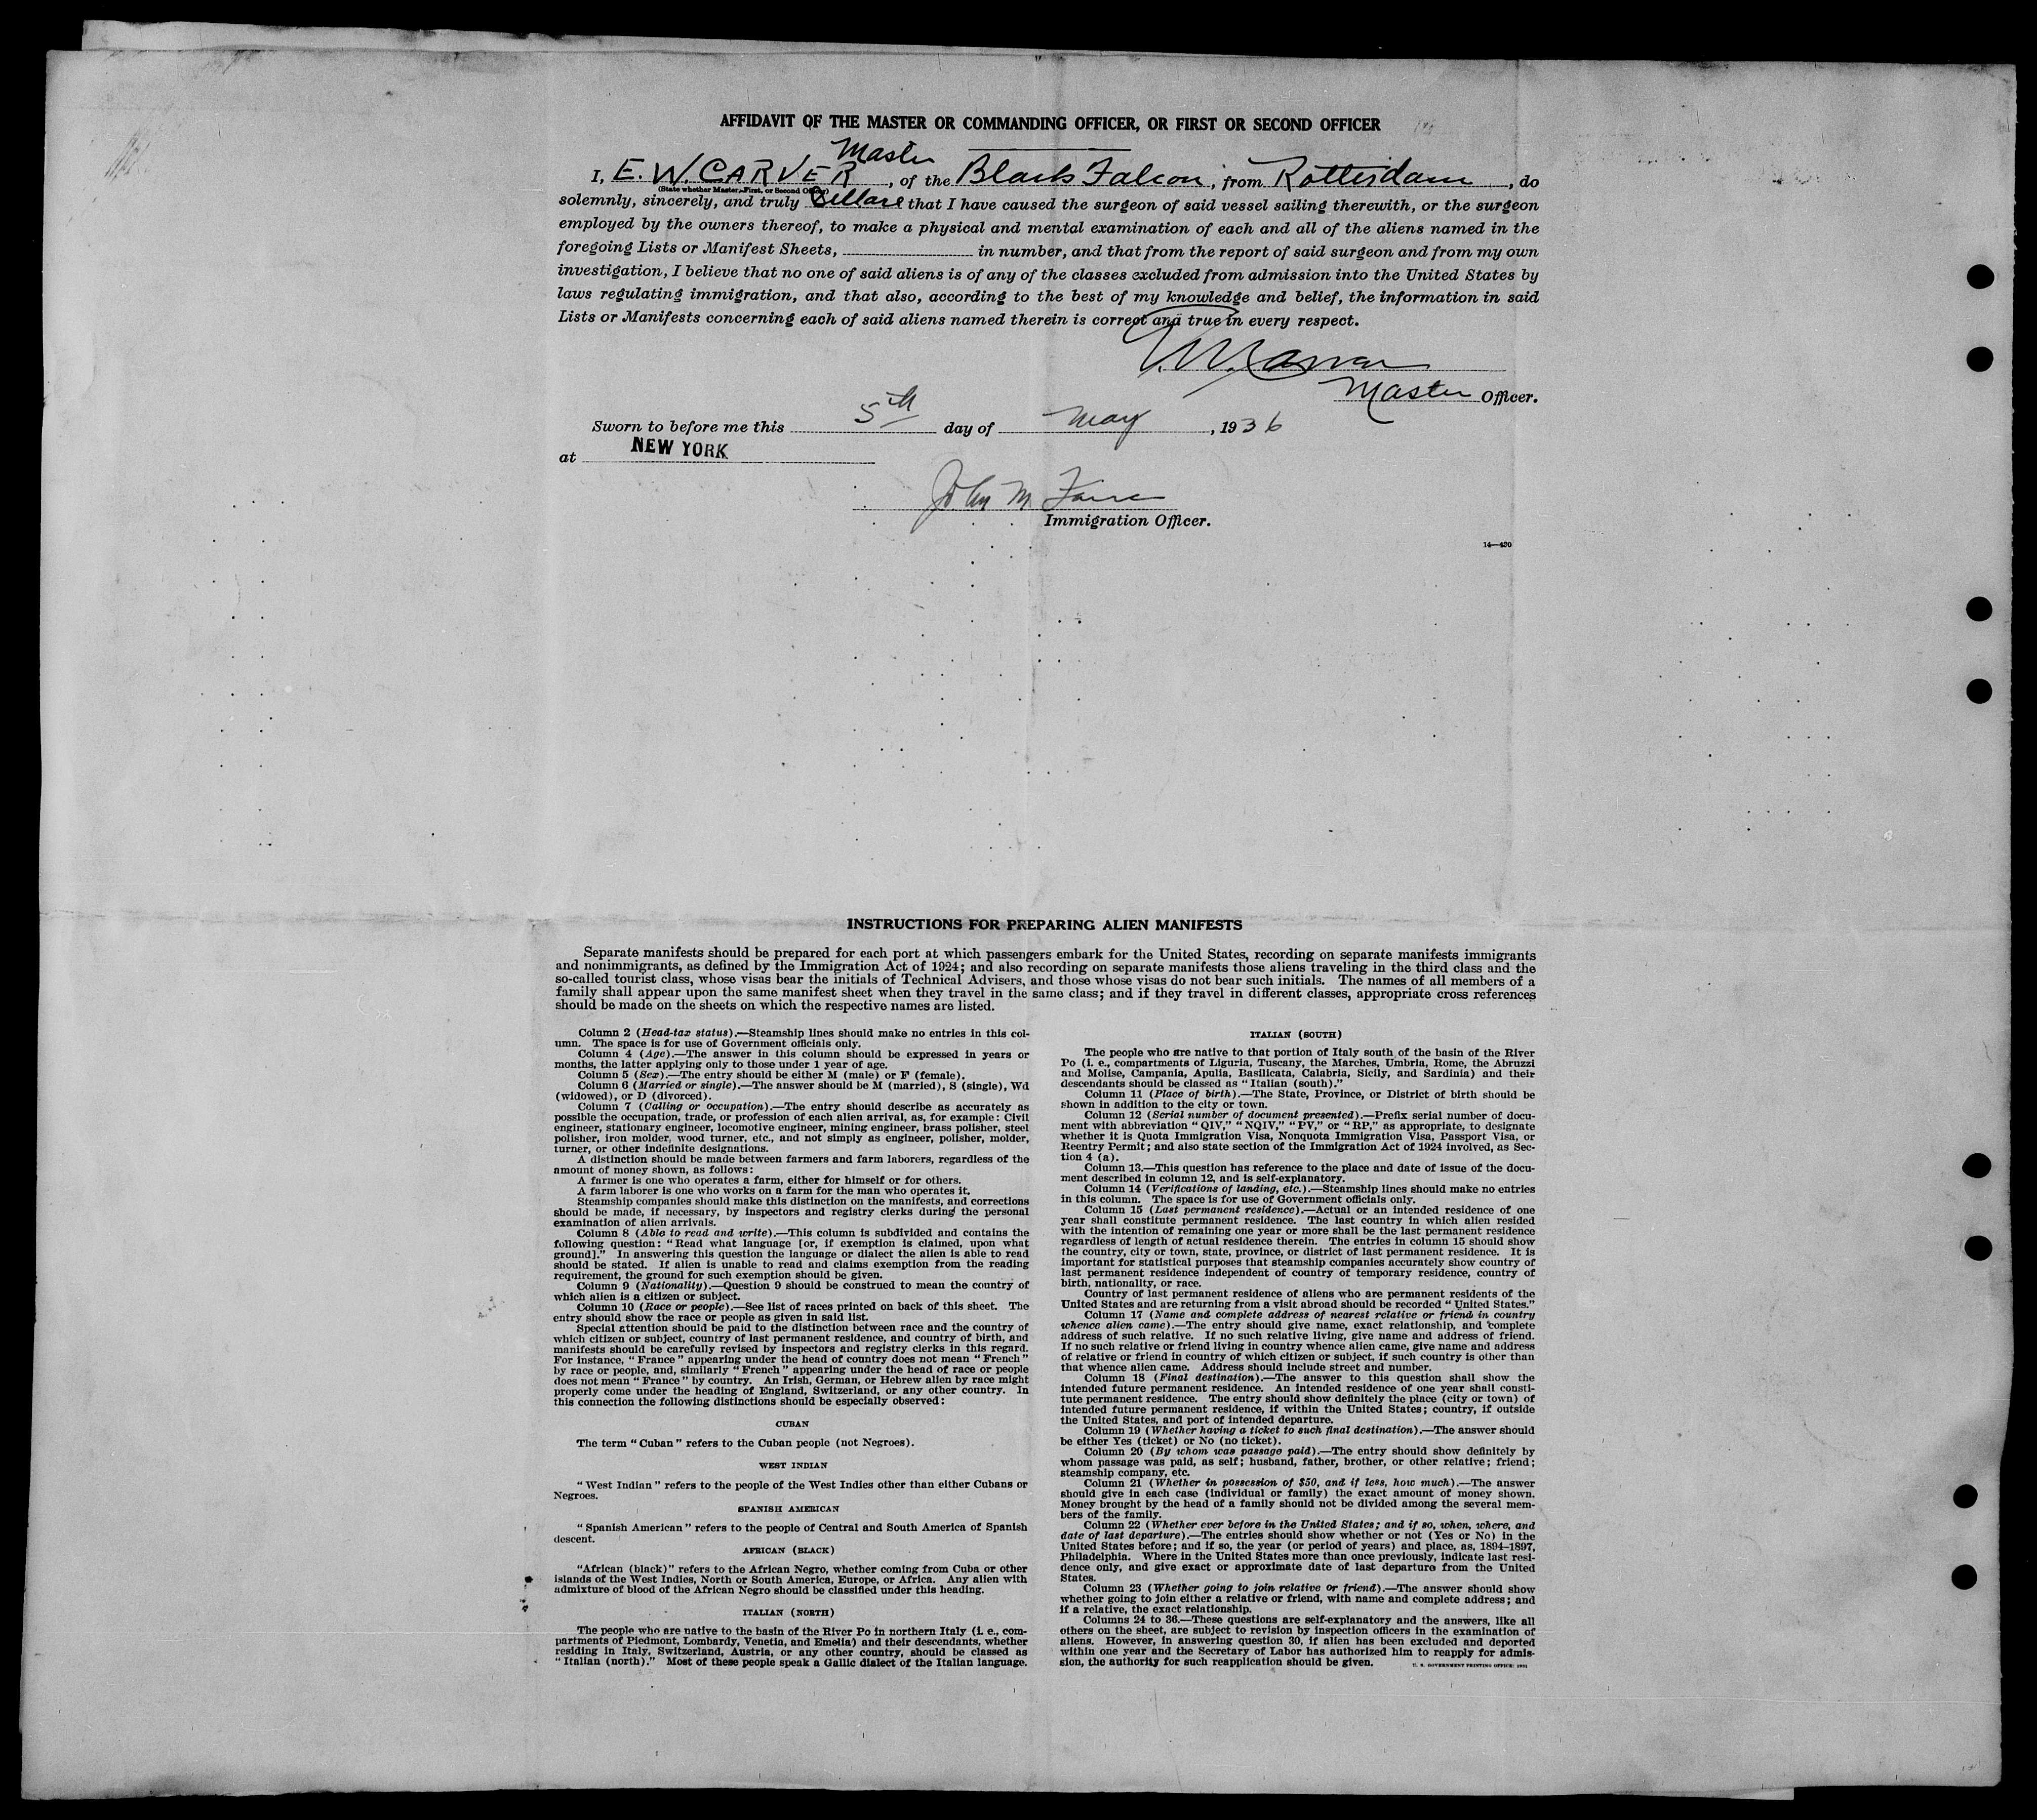 AFFIDAVIT OF THE MASTER OR COMMANDING OFFICER, OR FIRST OR SECOND OFFICER
Master
I, E. W. CARVER, of the Black Falcon, from Rotterdam, do
(State whether Master, First, or Second Officer)
solemnly, sincerely, and truly declare that I have caused the surgeon of said vessel sailing therewith, or the surgeon
employed by the owners thereof, to make a physical and mental examination of each and all of the aliens named in the
foregoing Lists or Manifest Sheets, in number, and that from the report of said surgeon and from my own
investigation, I believe that no one of said aliens is of any of the classes excluded from admission into the United States by
laws regulating immigration, and that also, according to the best of my knowledge and belief, the information in said
Lists or Manifests concerning each of said aliens named therein is correct and true in every respect.
E. W. Carver
Master Officer.
Sworn to before me this 5th day of May, 1936
at NEW YORK
John M
Immigration Officer.
14—430
INSTRUCTIONS FOR PREPARING ALIEN MANIFESTS
Separate manifests should be prepared for each port at which passengers embark for the United States, recording on separate manifests immigrants
and nonimmigrants, as defined by the Immigration Act of 1924; and also recording on separate manifests those aliens traveling in the third class and the
so-called tourist class, whose visas bear the initials of Technical Advisers, and those whose visas do not bear such initials. The names of all members of a
family shall appear upon the same manifest sheet when they travel in the same class; and if they travel in different classes, appropriate cross references
should be made on the sheets on which the respective names are listed.
Column 2 (Head-tax status).—Steamship lines should make no entries in this col-
umn. The space is for use of Government officials only.
Column 4 (Age).—The answer in this column should be expressed in years or
months, the latter applying only to those under 1 year of age.
Column 5 (Sex).—The entry should be either M (male) or F (female).
Column 6 (Married or single).—The answer should be M (married), S (single), Wd
(widowed), or D (divorced).
Column 7 (Calling or occupation).—The entry should describe as accurately as
possible the occupation, trade, or profession of each alien arrival, as, for example: Civil
engineer, stationary engineer, locomotive engineer, mining engineer, brass polisher, steel
polisher, iron molder, wood turner, etc., and not simply as engineer, polisher, molder,
turner, or other indefinite designations.
A distinction should be made between farmers and farm laborers, regardless of the
amount of money shown, as follows:
A farmer is one who operates a farm, either for himself or for others.
A farm laborer is one who works on a farm for the man who operates it.
Steamship companies should make this distinction on the manifests, and corrections
should be made, if necessary, by inspectors and registry clerks during the personal
examination of alien arrivals.
Column 8 (Able to read and write).—This column is subdivided and contains the
following question: "Read what language [or, if exemption is claimed, upon what
ground]." In answering this question the language or dialect the alien is able to read
should be stated. If alien is unable to read and claims exemption from the reading
requirement, the ground for such exemption should be given.
Column 9 (Nationality).—Question 9 should be construed to mean the country of
which alien is a citizen or subject.
Column 10 (Race or people).—See list of races printed on back of this sheet. The
entry should show the race or people as given in said list.
Special attention should be paid to the distinction between race and the country of
which citizen or subject, country of last permanent residence, and country of birth, and
manifests should be carefully revised by inspectors and registry clerks in this regard.
For instance, "France" appearing under the head of country does not mean "French"
by race or people, and, similarly "French" appearing under the head of race or people
does not mean "France" by country. An Irish, German, or Hebrew alien by race might
properly come under the heading of England, Switzerland, or any other country. In
this connection the following distinctions should be especially observed:
CUBAN
The term "Cuban" refers to the Cuban people (not Negroes).
WEST INDIAN
"West Indian" refers to the people of the West Indies other than either Cubans or
Negroes.
SPANISH AMERICAN
"Spanish American" refers to the people of Central and South America of Spanish
descent.
AFRICAN (BLACK)
"African (black)" refers to the African Negro, whether coming from Cuba or other
islands of the West Indies, North or South America, Europe, or Africa. Any alien with
admixture of blood of the African Negro should be classified under this heading.
ITALIAN (NORTH)
The people who are native to the basin of the River Po in northern Italy (i. e., com-
partments of Piedmont, Lombardy, Venetia, and Emelia) and their descendants, whether
residing in Italy, Switzerland, Austria, or any other country, should be classed as
"Italian (north)." Most of these people speak a Gallic dialect of the Italian language.
ITALIAN (SOUTH)
The people who are native to that portion of Italy south of the basin of the River
Po (i. e., compartments of Liguria, Tuscany, the Marches, Umbria, Rome, the Abruzzi
and Molise, Campania, Apulia, Basilicata, Calabria, Sicily, and Sardinia) and their
descendants should be classed as "Italian (south)."
Column 11 (Place of birth).—The State, Province, or District of birth should be
shown in addition to the city or town.
Column 12 (Serial number of document presented).—Prefix serial number of docu-
ment with abbreviation "QIV," "NQIV," "PV," or "RP," as appropriate, to designate
whether it is Quota Immigration Visa, Nonquota Immigration Visa, Passport Visa, or
Reentry Permit; and also state section of the Immigration Act of 1924 involved, as Sec-
tion 4 (a).
Column 13.—This question has reference to the place and date of issue of the docu-
ment described in column 12, and is self-explanatory.
Column 14 (Verifications of landing, etc.).—Steamship lines should make no entries
in this column. The space is for use of Government officials only.
Column 15 (Last permanent residence).—Actual or an intended residence of one
year shall constitute permanent residence. The last country in which alien resided
with the intention of remaining one year or more shall be the last permanent residence
regardless of length of actual residence therein. The entries in column 15 should show
the country, city or town, state, province, or district of last permanent residence. It is
important for statistical purposes that steamship companies accurately show country of
last permanent residence independent of country of temporary residence, country of
birth, nationality, or race.
Country of last permanent residence of aliens who are permanent residents of the
United States and are returning from a visit abroad should be recorded "United States."
Column 17 (Name and complete address of nearest relative or friend in country
whence alien came).—The entry should give name, exact relationship, and complete
address of such relative. If no such relative living, give name and address of friend.
If no such relative or friend living in country whence alien came, give name and address
of relative or friend in country of which citizen or subject, if such country is other than
that whence alien came. Address should include street and number.
Column 18 (Final destination).—The answer to this question shall show the
intended future permanent residence. An intended residence of one year shall consti-
tute permanent residence. The entry should show definitely the place (city or town) of
intended future permanent residence, if within the United States; country, if outside
the United States, and port of intended departure.
Column 19 (Whether having a ticket to such final destination).—The answer should
be either Yes (ticket) or No (no ticket).
Column 20 (By whom was passage paid).—The entry should show definitely by
whom passage was paid, as self; husband, father, brother, or other relative; friend;
steamship company, etc.
Column 21 (Whether in possession of $50, and if less, how much).—The answer
should give in each case (individual or family) the exact amount of money shown.
Money brought by the head of a family should not be divided among the several mem-
bers of the family.
Column 22 (Whether ever before in the United States; and if so, when, where, and
date of last departure).—The entries should show whether or not (Yes or No) in the
United States before; and if so, the year (or period of years) and place, as, 1894–1897,
Philadelphia. Where in the United States more than once previously, indicate last resi-
dence only, and give exact or approximate date of last departure from the United
States.
Column 23 (Whether going to join relative or friend).—The answer should show
whether going to join either a relative or friend, with name and complete address; and
if a relative, the exact relationship.
Columns 24 to 36.—These questions are self-explanatory and the answers, like all
others on the sheet, are subject to revision by inspection officers in the examination of
aliens. However, in answering question 30, if alien has been excluded and deported
within one year and the Secretary of Labor has authorized him to reapply for admis-
sion, the authority for such reapplication should be given.
U. S. GOVERNMENT PRINTING OFFICE: